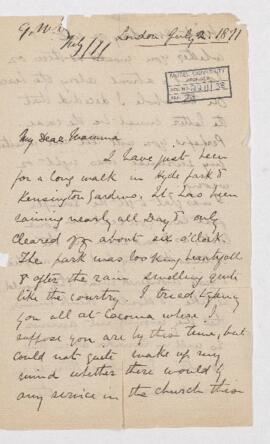 London July 2. 1871
July 1/71
My Dear Mamma
I have just been
for a long walk in Hyde Park &
Kensington Gardens, It has been
raining nearly all Day & only
cleared up about six o'clock.
The Park was looking beautifull
& after the rain smelling quite
like the country. I tried to fancy
you all at Cacouna where I
suppose you are by this time, but
could not quite make up my
mind whether there would be
any service in the church this